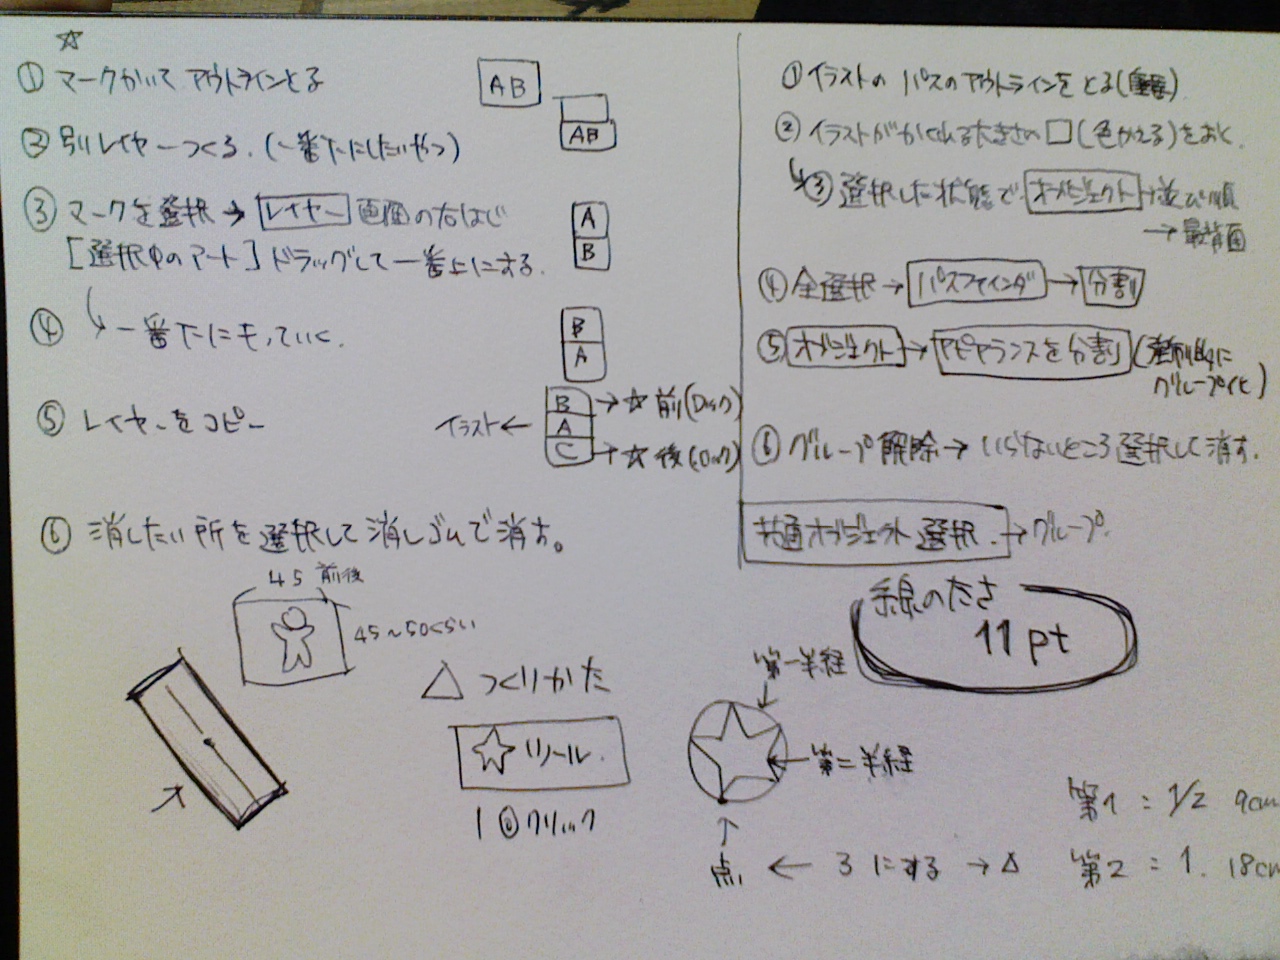 ☆
① マークかいて アウトラインとる
AB
AB
② 別レイヤーつくる.(一番下にしたいやつ)
③ マークを選択 → レイヤー 画面の右はじ
[選択中のアート] ドラッグして一番上にする.
A
B
④ 一番下にもっていく.
B
A
⑤ レイヤーをコピー
イラスト ←
B → ☆ 前(ロック)
A
C → ☆ 後(ロック)
⑥ 消したい所を選択して消しゴムで消す。
45 前後
45~50くらい
△ つくりかた
☆ツール.
1回クリック
① イラストの パスのアウトラインを とる()
② イラストがかくれる大きさの □(色かえる)をおく.
③ 選択した状態で オブジェクト 並び順
→ 最背面
④ 全選択 → パスファインダ → 分割
⑤ オブジェクト → アピアランスを分割 (強制的に
グループ化)
⑥ グループ解除 → いらないところ選択して消す.
共通オブジェクト選択. → グループ.
線の太さ
11pt
第一半径
← 第二半径
↑
点 ← 3にする → △
第1 : 1/2 9cm
第2 : 1. 18cm